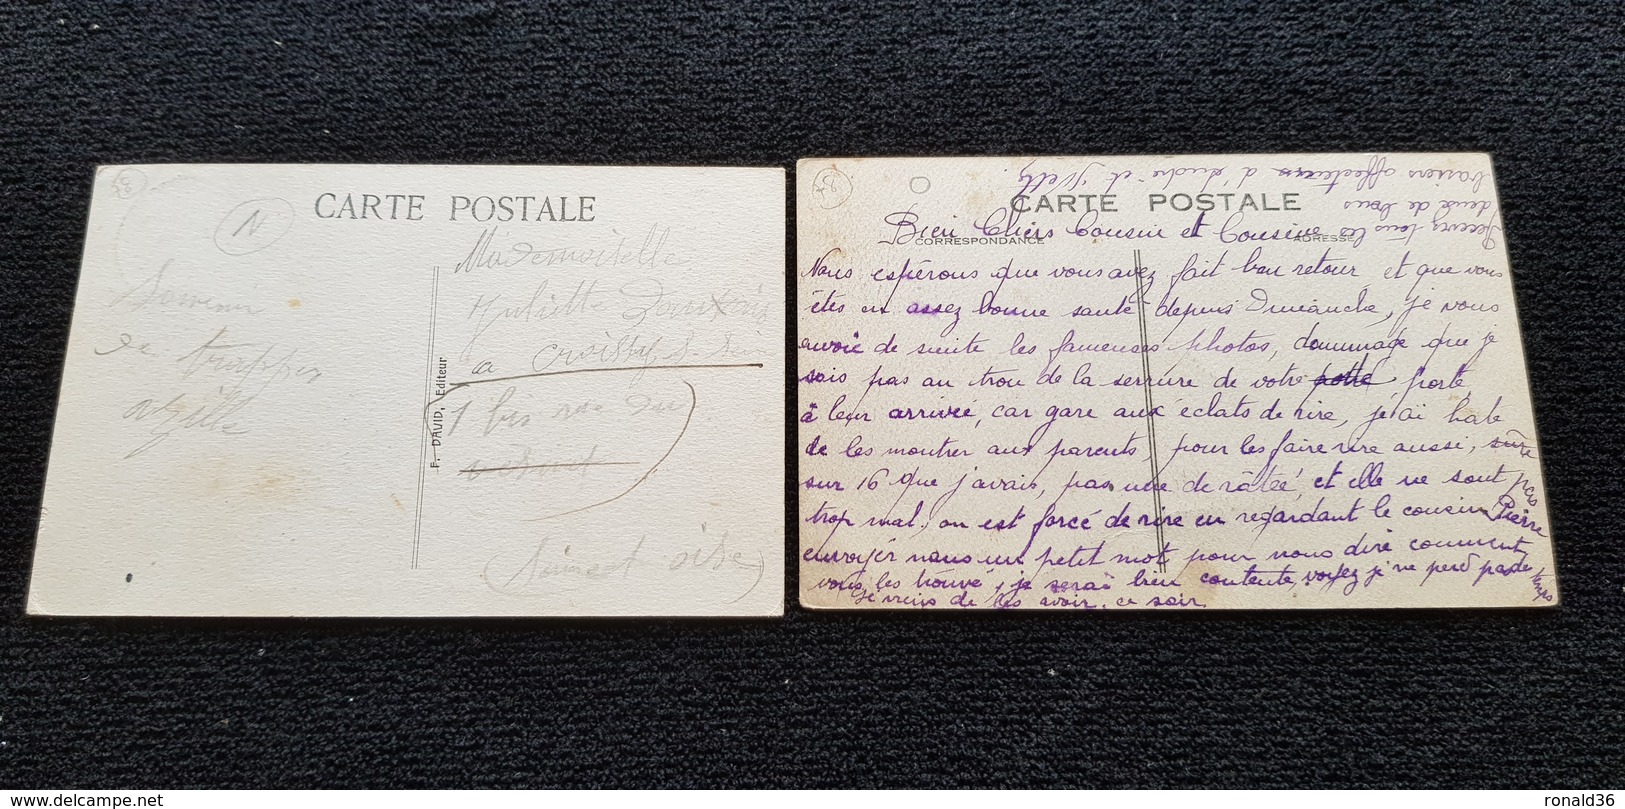 CARTE POSTALE
N
Souvenir
de
Mademoiselle
Juliette
a Croissy s Seine
1 bis rue du
oise
F. DAVID, Editeur
CARTE POSTALE
CORRESPONDANCE
ADRESSE
Bien Chers Cousin et Cousine
Nous espérons que vous avez fait bon retour et que vous
êtes en assez bonne santé depuis Dimanche, je vous
envoie de suite les fameuses photos, dommage que je
sois pas au trou de la serrure de votre porte
à leur arrivée, car gare aux éclats de rire, j'ai hate
de les montrer aux parents, pour les faire rire aussi,
sur 16 que j'avais, pas une de râtée, et elle ne sont pas
trop mal, on est forcé de rire en regardant le cousin Pierre
envoyer nous un petit mot pour nous dire comment
vous les trouvé, je serai bien contente, voyez j'ne perd pas de temps
je viens de les avoir, ce soir.
Recevez tous les
deux de nous
baisers affectueux d'André et Nelly
delcampe.net
ronald36